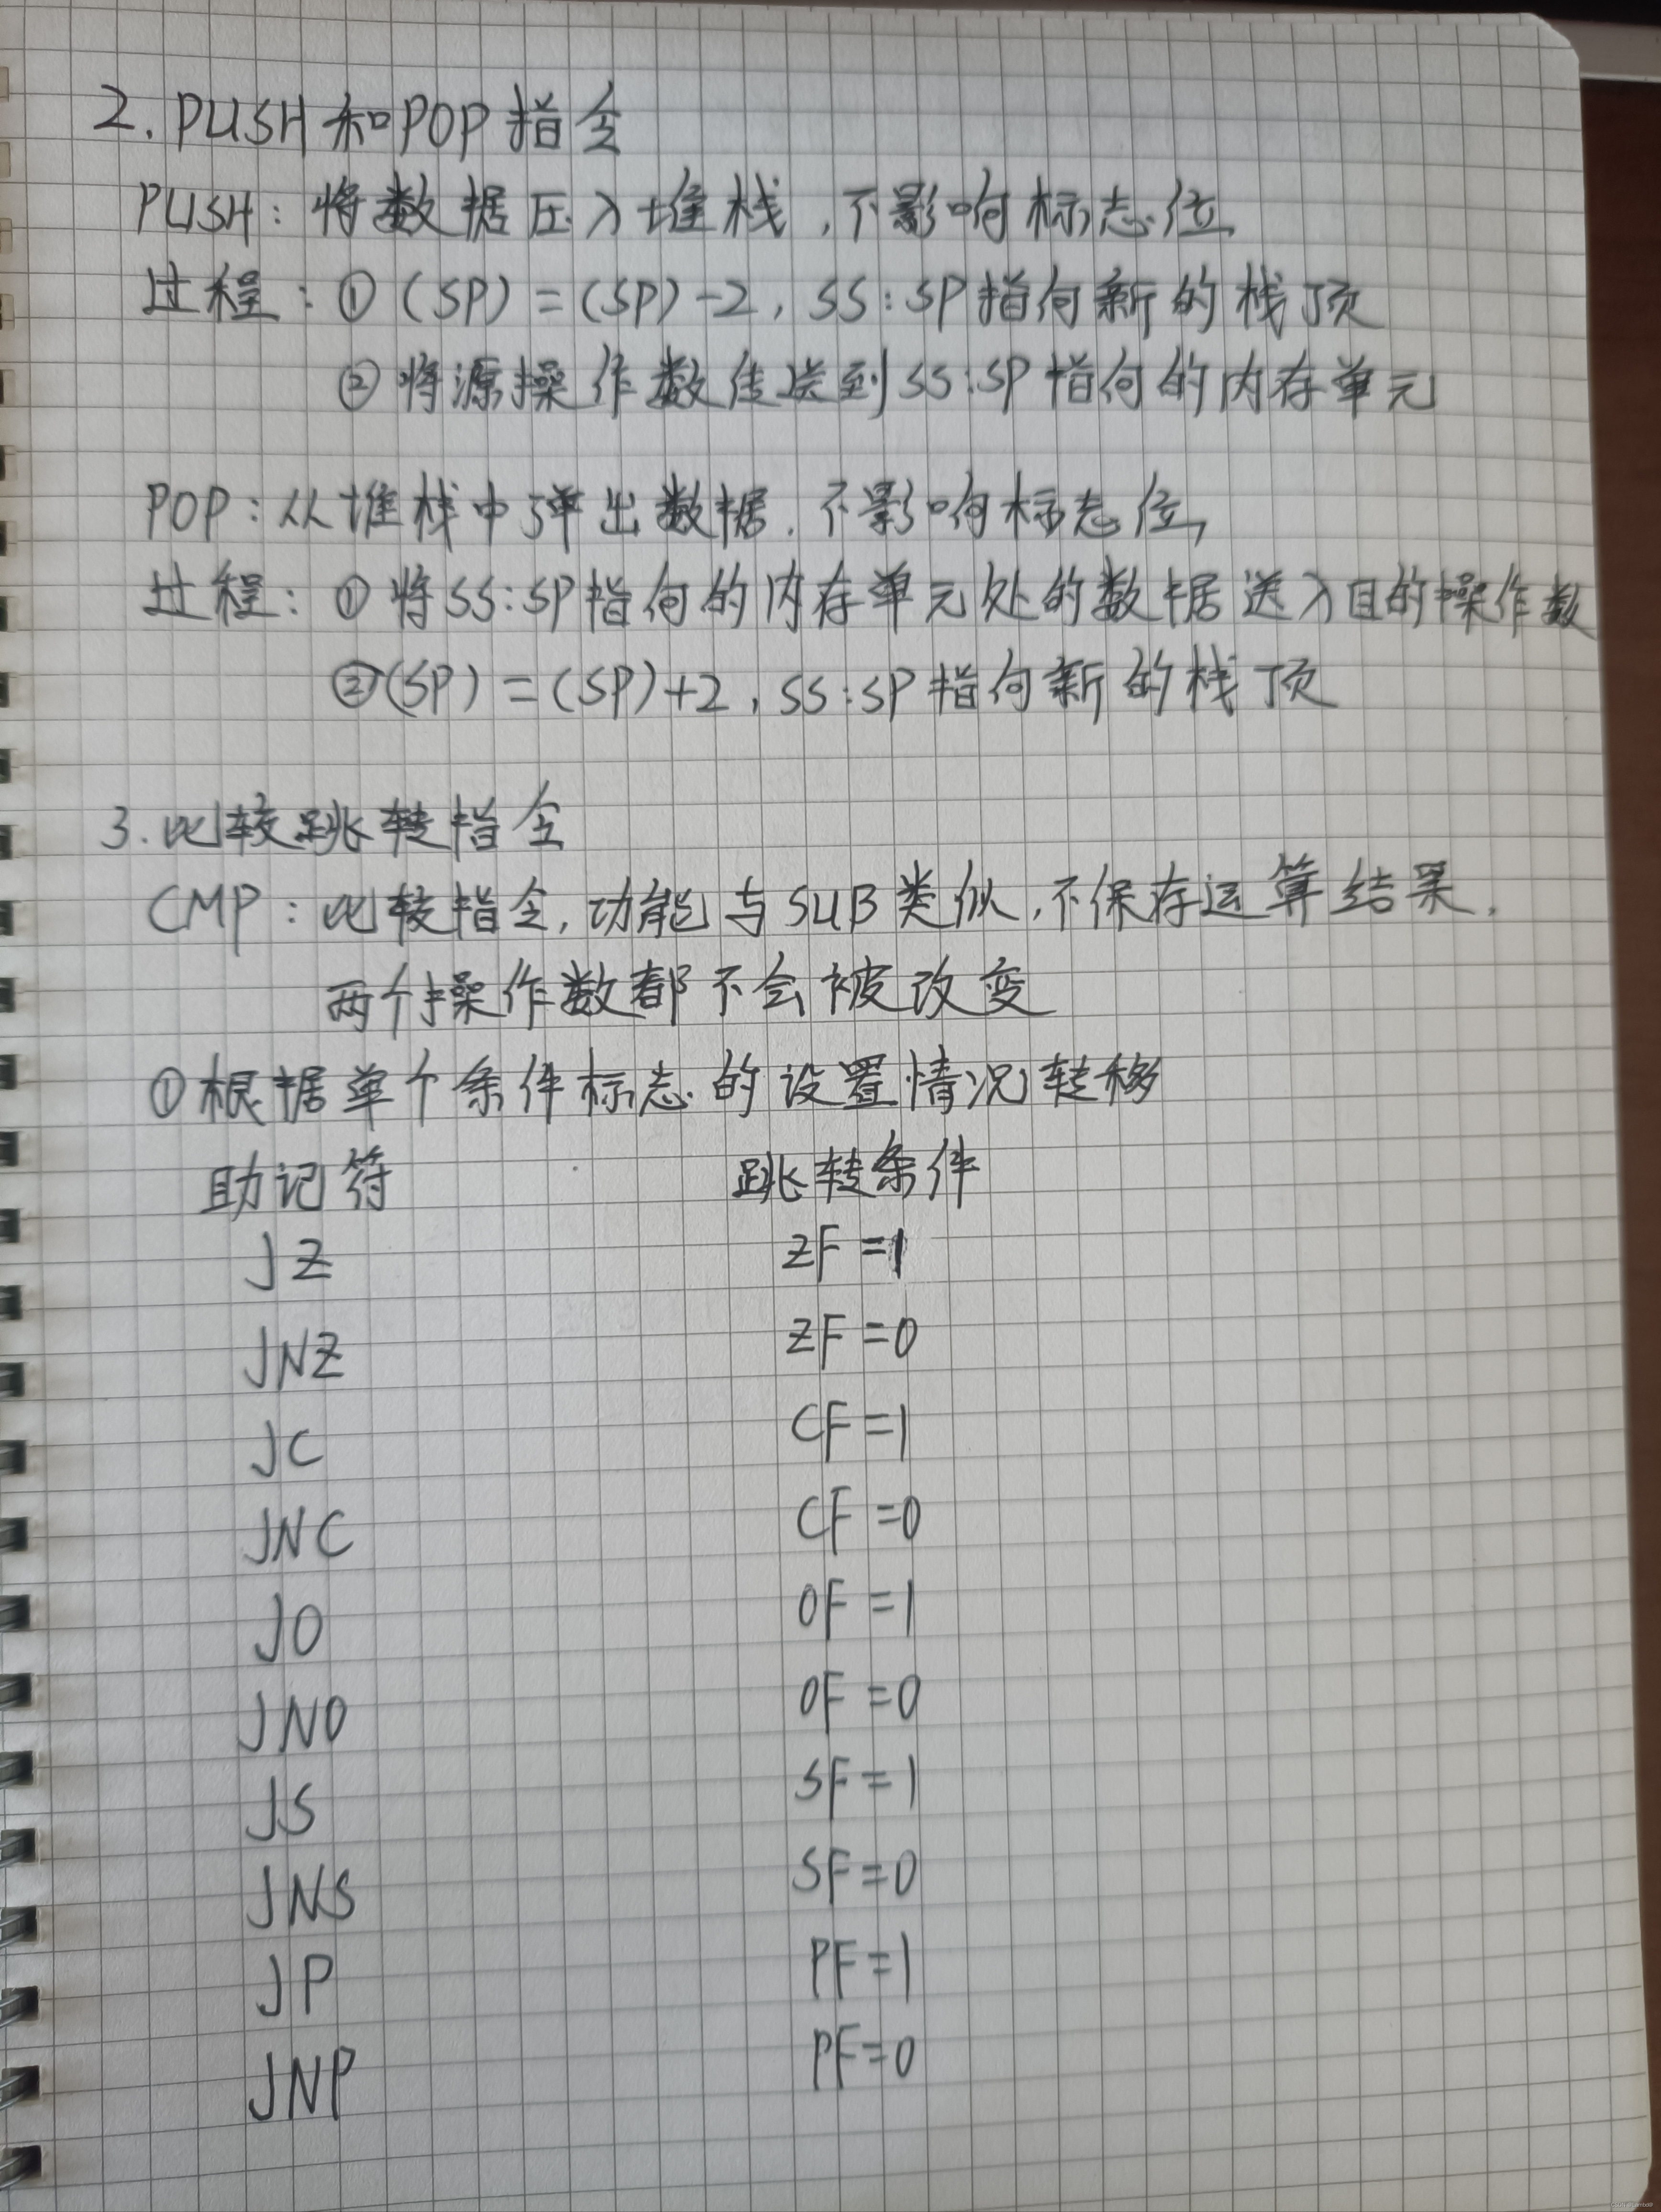 2. PUSH和POP指令
PUSH: 将数据压入堆栈,不影响标志位,
过程: ① (SP) = (SP)-2, SS:SP指向新的栈顶
② 将源操作数传送到SS:SP指向的内存单元
POP: 从堆栈中弹出数据.不影响标志位,
过程: ① 将SS:SP指向的内存单元处的数据送入目的操作数
②(SP) = (SP)+2, SS:SP指向新的栈顶
3. 比较跳转指令
CMP: 比较指令,功能与SUB类似,不保存运算结果,
两个操作数都不会被改变
① 根据单个条件标志的设置情况转移
助记符 跳转条件
JZ ZF=1
JNZ ZF=0
JC CF=1
JNC CF=0
JO OF=1
JNO OF=0
JS SF=1
JNS SF=0
JP PF=1
JNP PF=0